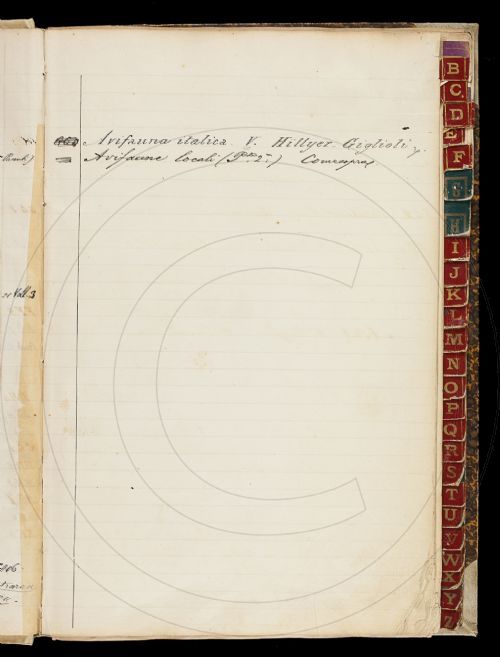 Avifauna italica. V. Hillyer Giglioli.
= Avifaune locali (Pte 2.a) Comesopra
Vol. 3
B
C
D
E
F
G
H
I
J
K
L
M
N
O
P
Q
R
S
T
U
V
W
X
Y
Z